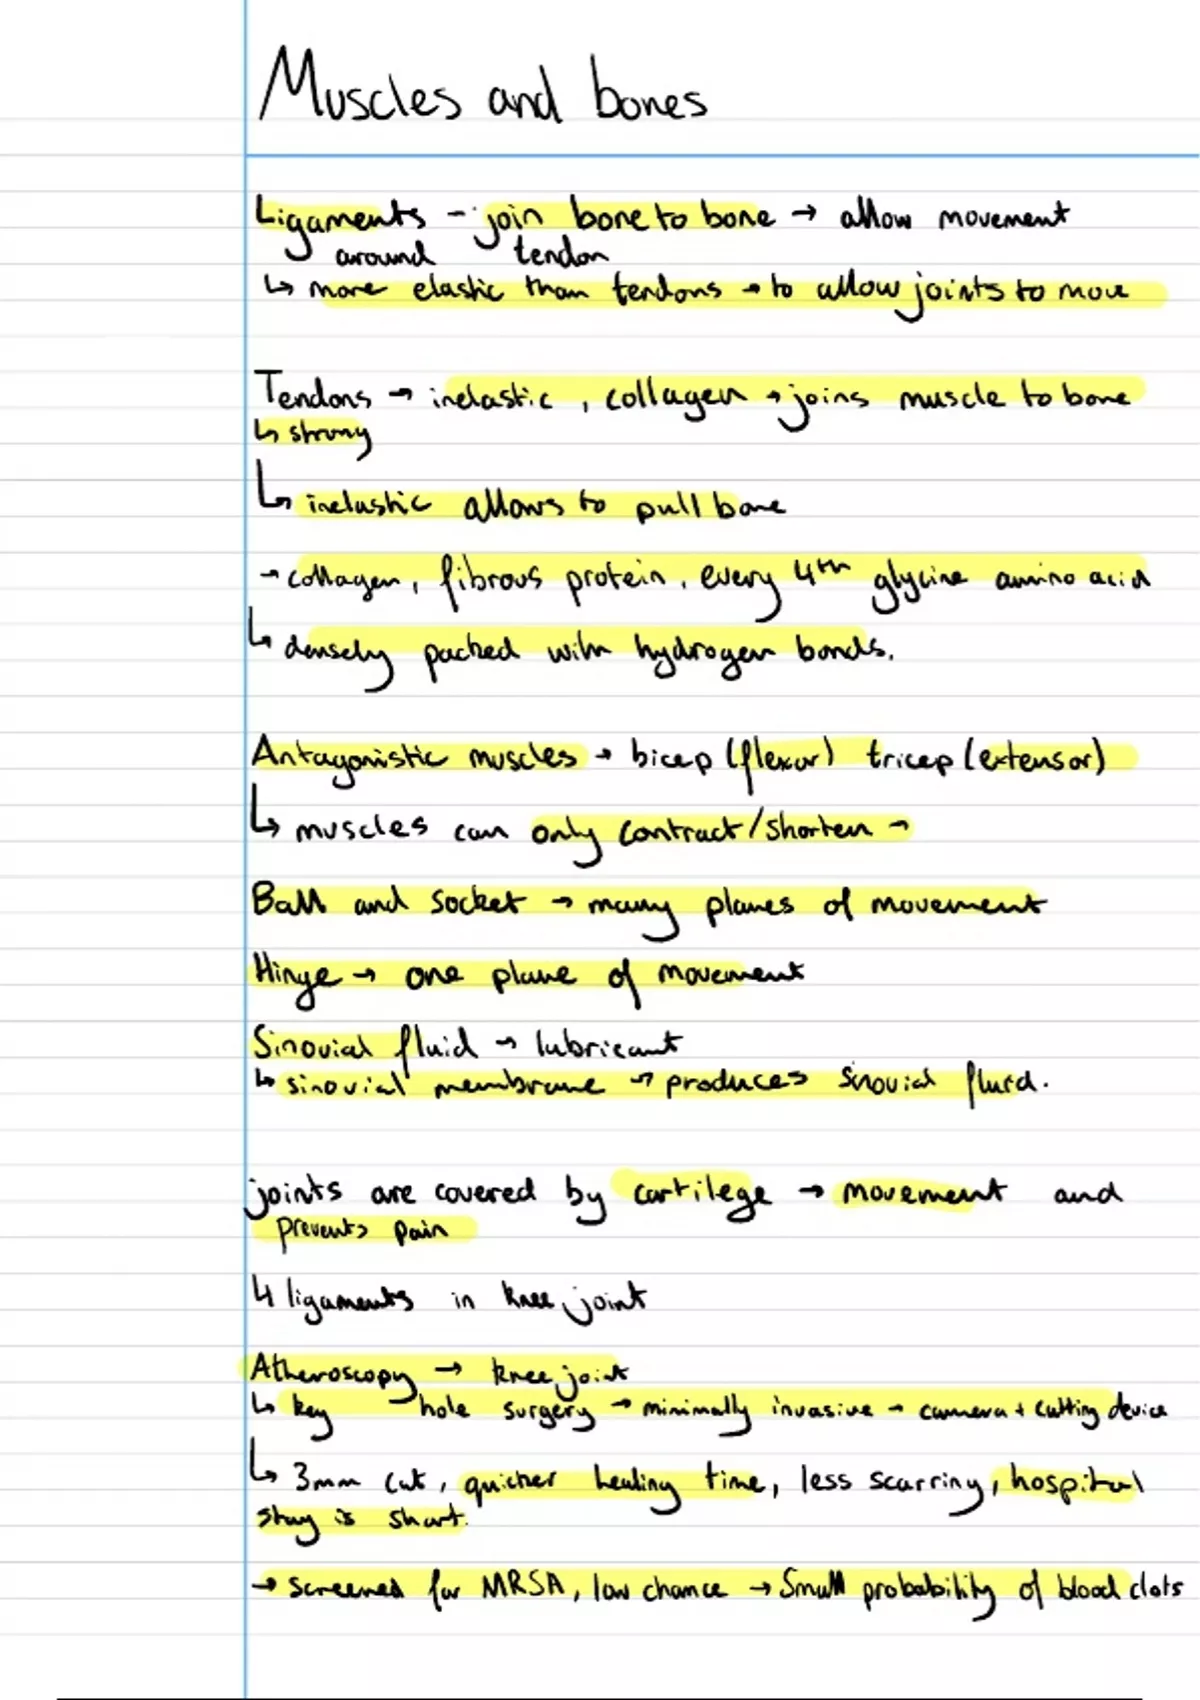 Muscles and bones
Ligaments - join bone to bone → allow movement
around tendon
↳ more elastic than tendons → to allow joints to move
Tendons → inelastic, collagen → joins muscle to bone
↳ strong
↳ inelastic allows to pull bone
→ collagen, fibrous protein, every 4th glycine amino acid
↳ densely packed with hydrogen bonds.
Antagonistic muscles → bicep (flexor) tricep (extensor)
↳ muscles can only contract/shorten →
Ball and socket → many planes of movement
Hinge → one plane of movement
Sinovial fluid → lubricant
↳ sinovial membrane → produces sinovial fluid.
joints are covered by cartilege → movement and
prevents pain
4 ligaments in knee joint
Atheroscopy → knee joint
↳ key hole surgery → minimally invasive → camera + cutting device
↳ 3mm cut, quicker healing time, less scarring, hospital
stay is short.
→ screened for MRSA, low chance → Small probability of blood clots